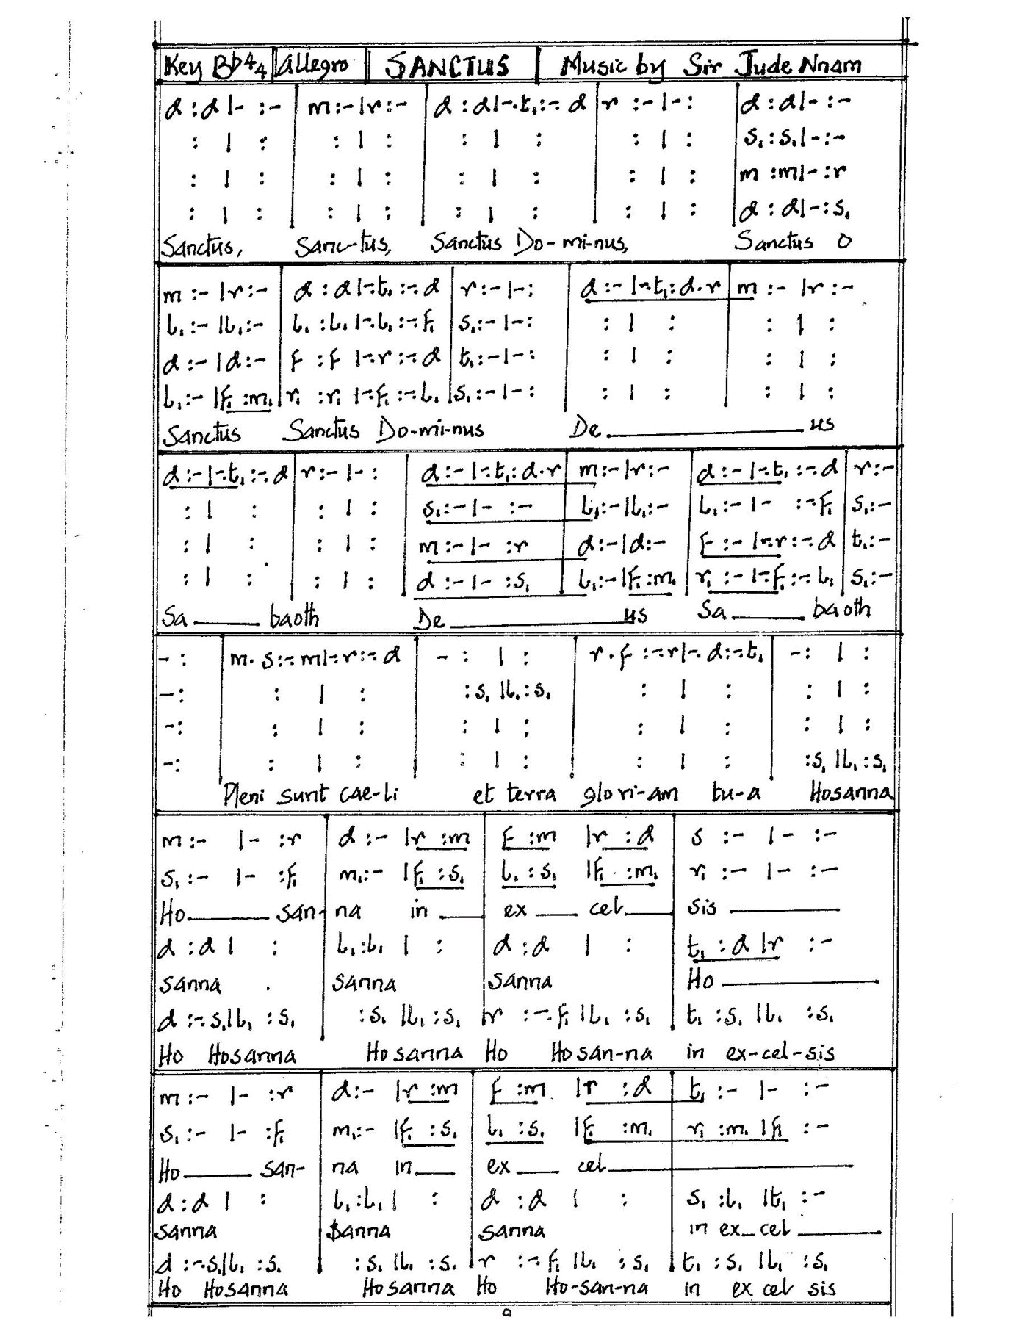 Key B♭ 4/4 Allegro SANCTUS Music by Sir Jude Nnam
d : d |- : - | m : - |r : - | d : d |-.t₁ :-. d | r : - |- : - | d : d |- : -
: | : | : | : | : | : | : | : | s₁ : s₁ |- : -
: | : | : | : | : | : | : | : | m : m |- : r
: | : | : | : | : | : | : | : | d : d |- : s₁
Sanctus, Sanc-tus, Sanctus Do-mi-nus, Sanctus O
m : - |r : - | d : d |-.t₁ :-. d | r : - |- : | d : - |-.t₁ : d.r | m : - |r : -
l₁ : - |l₁ : - | l₁ : l₁ |-.l₁ :-. f₁ | s₁ : - |- : | : | : | : | :
d : - |d : - | f : f |-.r :-. d | t₁ : - |- : | : | : | : | :
l₁ : - |f₁ : m₁ | r₁ : r₁ |-.f₁ :-. l₁ | s₁ : - |- : | : | : | : | :
Sanctus Sanctus Do-mi-nus De____ us
d : - |-.t₁ :-. d | r : - |- : | d : - |-.t₁ : d.r | m : - |r : - | d : - |-.t₁ :-. d | r : -
: | : | : | : | s₁ : - |- : - | l₁ : - |l₁ : - | l₁ : - |- :-. f₁ | s₁ : -
: | : | : | : | m : - |- : r | d : - |d : - | f : - |-.r :-. d | t₁ : -
: | : | : | : | d : - |- : s₁ | l₁ : - |f₁ : m₁ | r₁ : - |-.f₁ :-. l₁ | s₁ : -
Sa____ baoth De____ us Sa____ baoth
- : | m. s :-. m |-. r :-. d | - : | : | r . f :-. r |-. d :-. t₁ | - : | :
- : | : | : | : s₁ |l₁ : s₁ | : | : | : | :
- : | : | : | : | : | : | : | : | :
- : | : | : | : | : | : | : | : s₁ |l₁ : s₁
Pleni sunt cae-li et terra glori-am tu-a Hosanna
m : - |- : r | d : - |r : m | f : m |r : d | s : - |- : -
s₁ : - |- : f₁ | m₁ : - |f₁ : s₁ | l₁ : s₁ |f₁ : m₁ | r₁ : - |- : -
Ho____ san- na in ____ ex ____ cel____ sis ____
d : d | : | l₁ : l₁ | : | d : d | : | t₁ : d |r : -
sanna sanna sanna Ho____
d :-. s₁ |l₁ : s₁ | : s₁ |l₁ : s₁ | r :-. f₁ |l₁ : s₁ | t₁ : s₁ |l₁ : s₁
Ho Hosanna Hosanna Ho Hosan-na in ex-cel-sis
m : - |- : r | d : - |r : m | f : m |r : d | t₁ : - |- : -
s₁ : - |- : f₁ | m₁ : - |f₁ : s₁ | l₁ : s₁ |f₁ : m₁ | r₁ : m₁ |f₁ : -
Ho____ san- na in____ ex____ cel____
d : d | : | l₁ : l₁ | : | d : d | : | s₁ : l₁ |t₁ : -
sanna sanna sanna in ex_ cel____
d :-. s₁ |l₁ : s₁ | : s₁ |l₁ : s₁ | r :-. f₁ |l₁ : s₁ | t₁ : s₁ |l₁ : s₁
Ho Hosanna Hosanna Ho Ho-san-na in ex cel sis